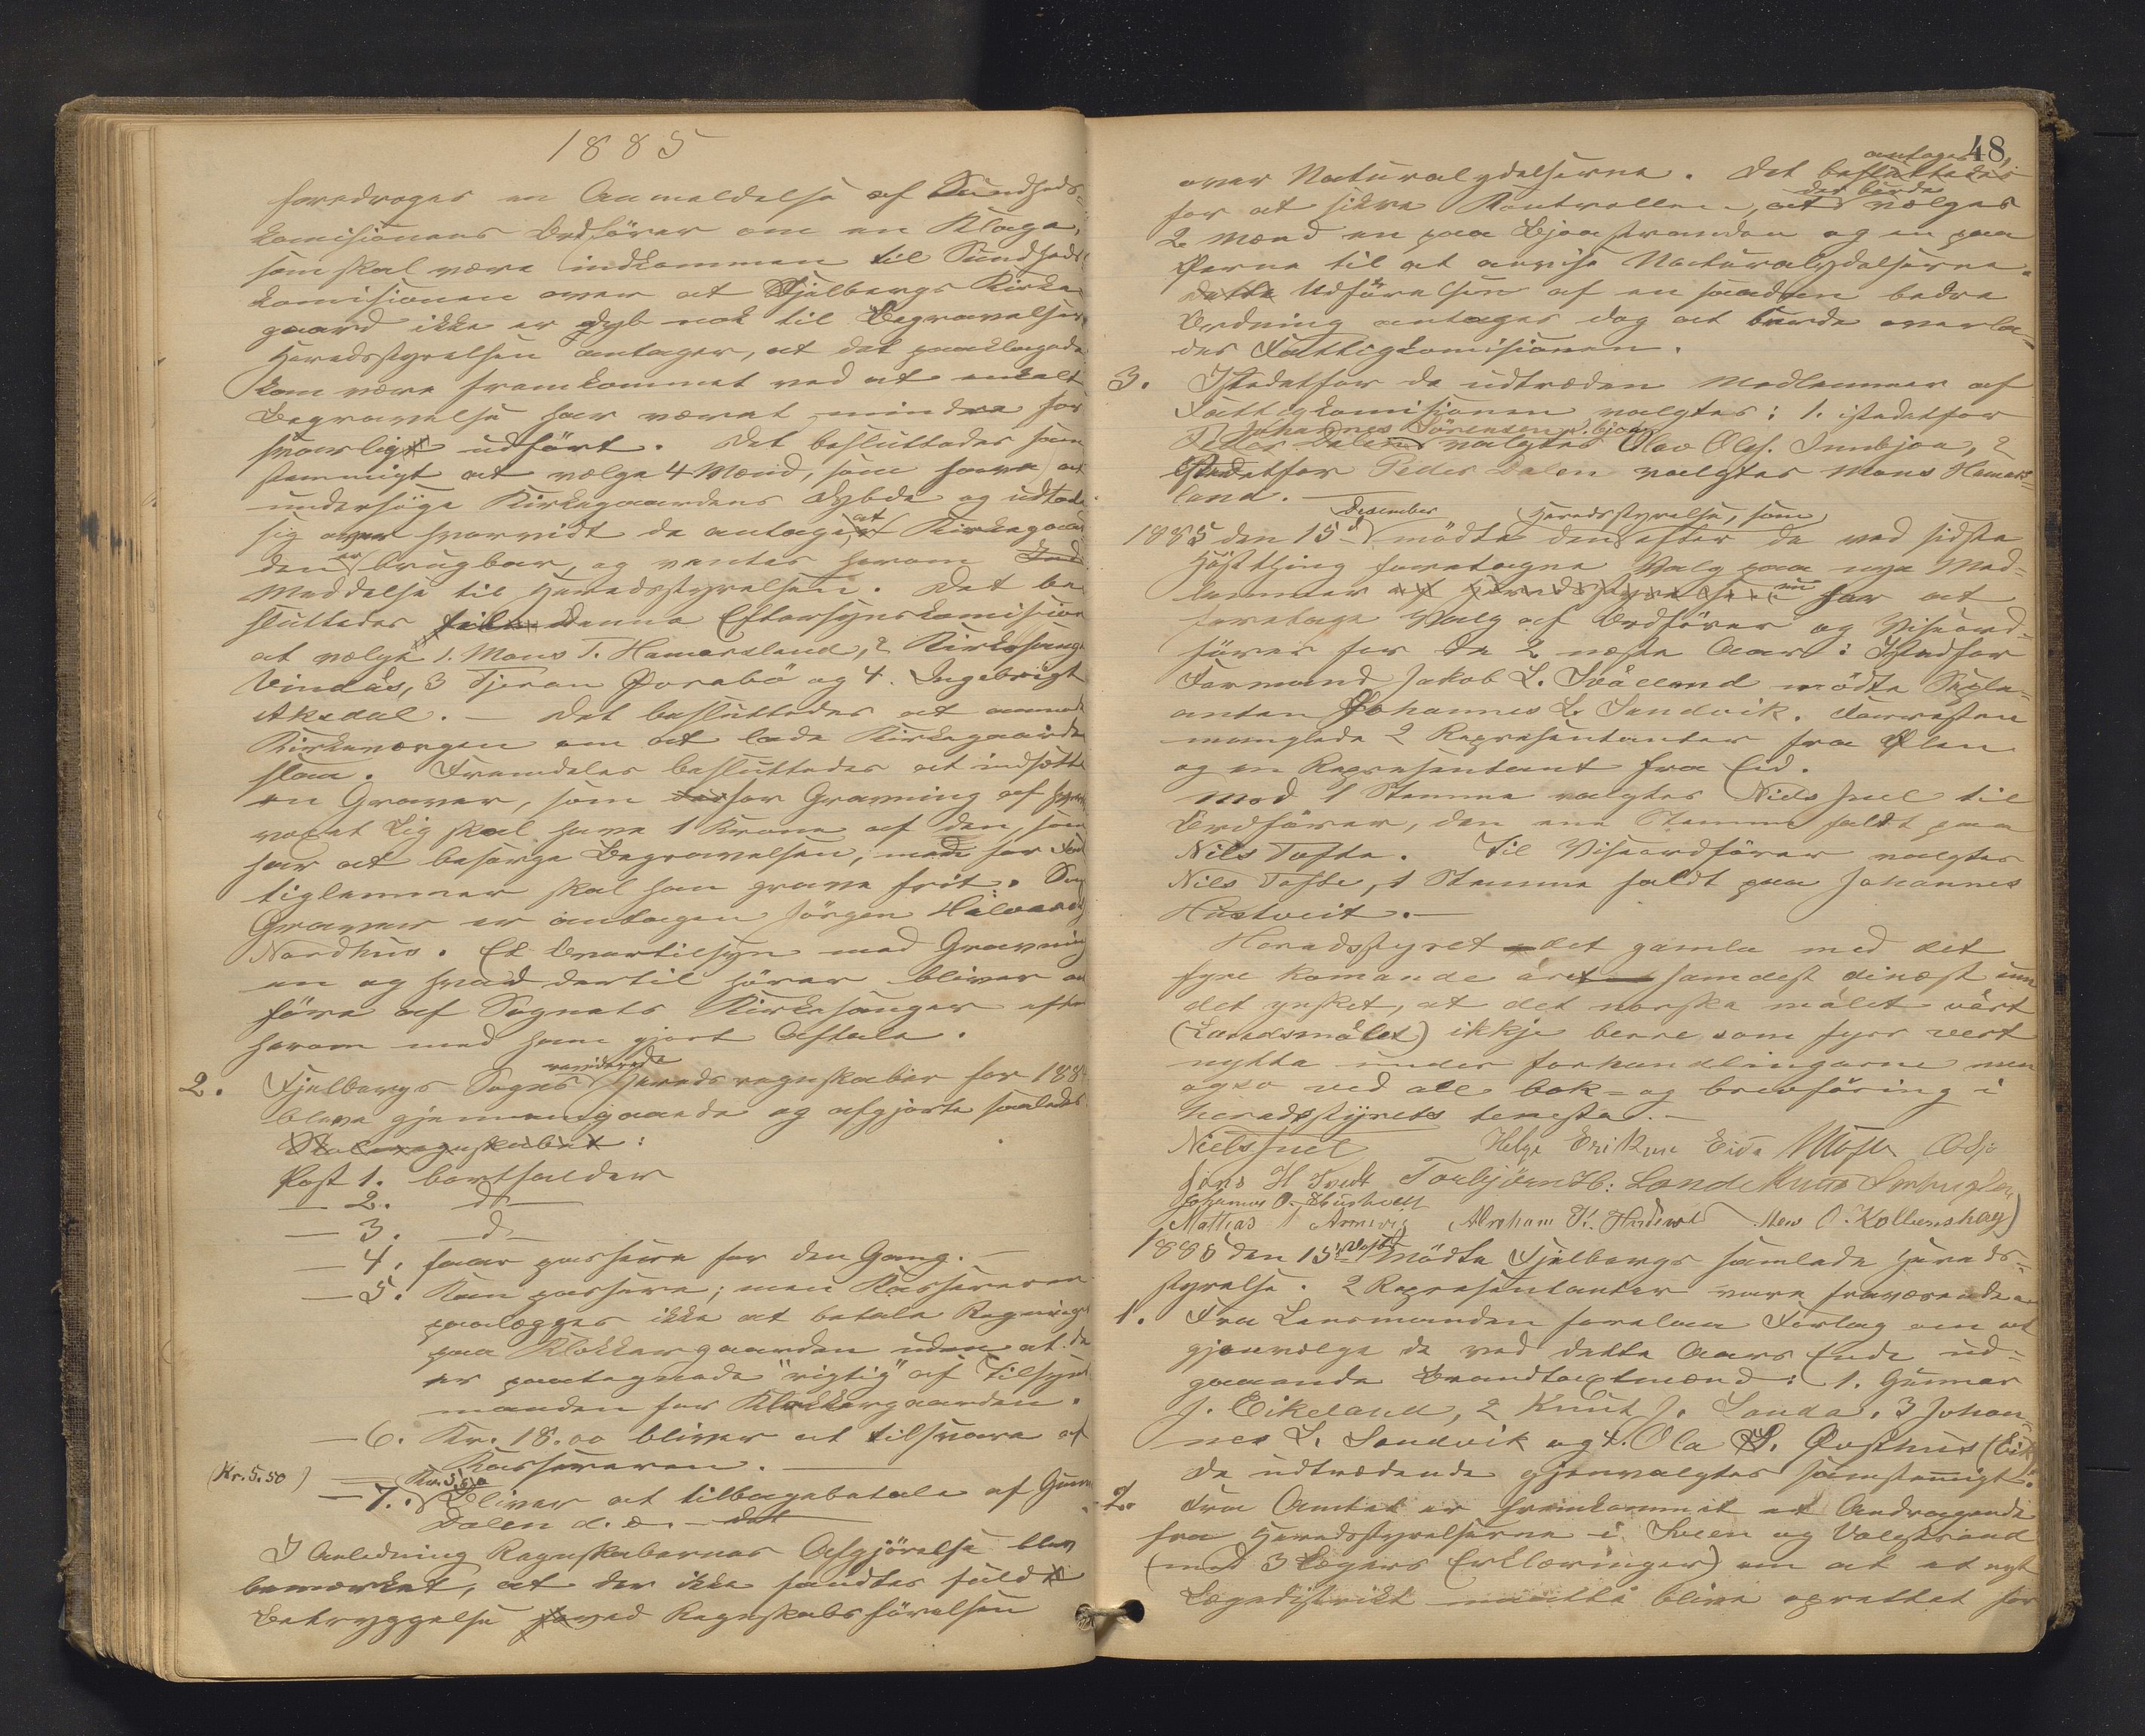 1885
foredroges en Anmeldelse af Sundheds-
komisionens Ordförer om en Klage,
som skal være indkommen til Sundheds-
komisionen over at Fjelbergs Kirke-
gaard ikke er dyb nok til Begravelser
Heredsstyrelsen antager, at det paaklagede
kan være fremkommet ved at enkelt
Begravelse har været mindre for
svarligt udfört. Det besluttedes sam
stemmigt at vælge 4 Mænd, som have at
undersöge Kirkegaardens Dybde og udtale
sig over hvorvidt de antager, at Kirkegaar
den er brugbar, og ventes herom
Meddelse til Heredsstyrelsen. Det be
sluttedes til Denne Eftersynskomision
at vælge 1. Mons T. Hamarsland, 2 Kirkesanger
Vindås, 3 Tjeran Ørabö og 4. Ingebrigt
Aksdal. — Det besluttedes at anmode
Kirkeværgen om at lade Kirkegaarden
slaa. Fremdeles besluttedes at indsætte
en Graver, som for Gravning af hver
voxet Lig skal have 1 Krone af den, som
har at besörge Begravelsen, men for Fat
tiglemmer skal han grave frit. Som
Graver er antagen Jörgen Halvards
Nordhus. Et Overtilsyn med Gravning
en og hvad dertil hörer bliver at
före af Sognets Kirkesanger efter
herom med ham gjort Aftale.
2. Fjelbergs Sogns reviderede Heredsregnskaber for 188
bleve gjennemgaaede og afgjorte saaledes
Skoleregnskabet:
Post 1. bortfalder
— 2. do
— 3. do
— 4. faar passere for den Gang. —
— 5. Kan passere; men Kassereren
paalægges ikke at betale Regninger
paa Klokkergaarden uden at de
er paategnede "rigtig" af Tilsyns
manden for Klokkergaarden.
— 6. Kr. 18.00 bliver at tilsvare af
Kassereren.
(Kr. 5.50) — 7. Kr. 5,50 Bliver at tilbagebetale af Gunnar
Dalen d. æ. — det
I Anledning Regnskabernes Afgjörelse blev
bemærket, at der ikke fandtes fuld
Betryggelse ved Regnskabsförelsen
48
over Naturalydelserne. Det besluttedes antages,
for at sikre Kontrollen, at der burde vælges
2 Mænd en paa Bjoastranden og en paa
Øerne til at anvise Naturalydelserne.
Dette Udförelsen af en saadan bedre
Ordning antages dog at burde overla-
des Fattigkomisionen.
3. Istedetfor de udtræden Medlemmer af
Fattigkomisionen valgtes: 1. istedetfor
Peder Dalen Johannes Sörensen N. Bjoa valgtes Olav Ols. Innbjoa, 2
Istedetfor Peder Dalen valgtes Mons Hamars-
land.
1885 den 15d Desember mödte den Heredsstyrelse, som efter de ved sidste
Höstthing foretagne Valg paa nye Med-
lemmer af Heredsstyrelsen nu har at
foretage Valg af Ordförer og Viseord-
förer for de 2 næste Aar: Istedfor
Formand Jakob L. Svåland mödte Suple-
anten Johannes L. Sandvik. Forresten
manglede 2 Repræsentanter fra Ølen
og en Repræsentant fra Eid.
Mod 1 Stemme valgtes Niels Juel til
Ordförer, den ene Stemme faldt paa
Nils Tofte. Til Viseordförer valgtes
Nils Tofte, 1 Stemme faldt paa Johannes
Hustveit. —
Heradsstyret det gamla med det
fyre komande året samdest dinæst um
det ynsket, at det norske målet vårt
(Landsmålet) ikkje berre som fyrr vert
nytta under forhandlingarne men
ogso ved all bok- og brevföring i
heradsstyrets tenesta. —
Niels Juel Helge Eriksen Eide NTofte
Jens H Tvedt Torbjörn H: Lande
Johannes O. Hustvett
Mattias Abraham K. O. Kollenshog
1885 den 15de mödte Fjelbergs samlede Hereds-
styrelse. 2 Repræsentanter vare fraværende
1. Fra Lensmanden forelaa Forlag om at
gjenvælge de ved dette Aars Ende ud-
gaaende Brandtaxtmænd: 1. Gunnar
J. Eikeland, 2 Knut J. Landa, 3 Johan-
nes L. Sandvik og 4. Ola S. Øvsthus (Eik)
De udtrædende gjenvalgtes samstemmigt.
2. Fra Amtet er fremkommet et Andragende
fra Heredsstyrelserne i Sveen og Valestrand
(med 3 Lægers Erklæringer) om at et nyt
Lægedistrikt maatte blive oprettet for